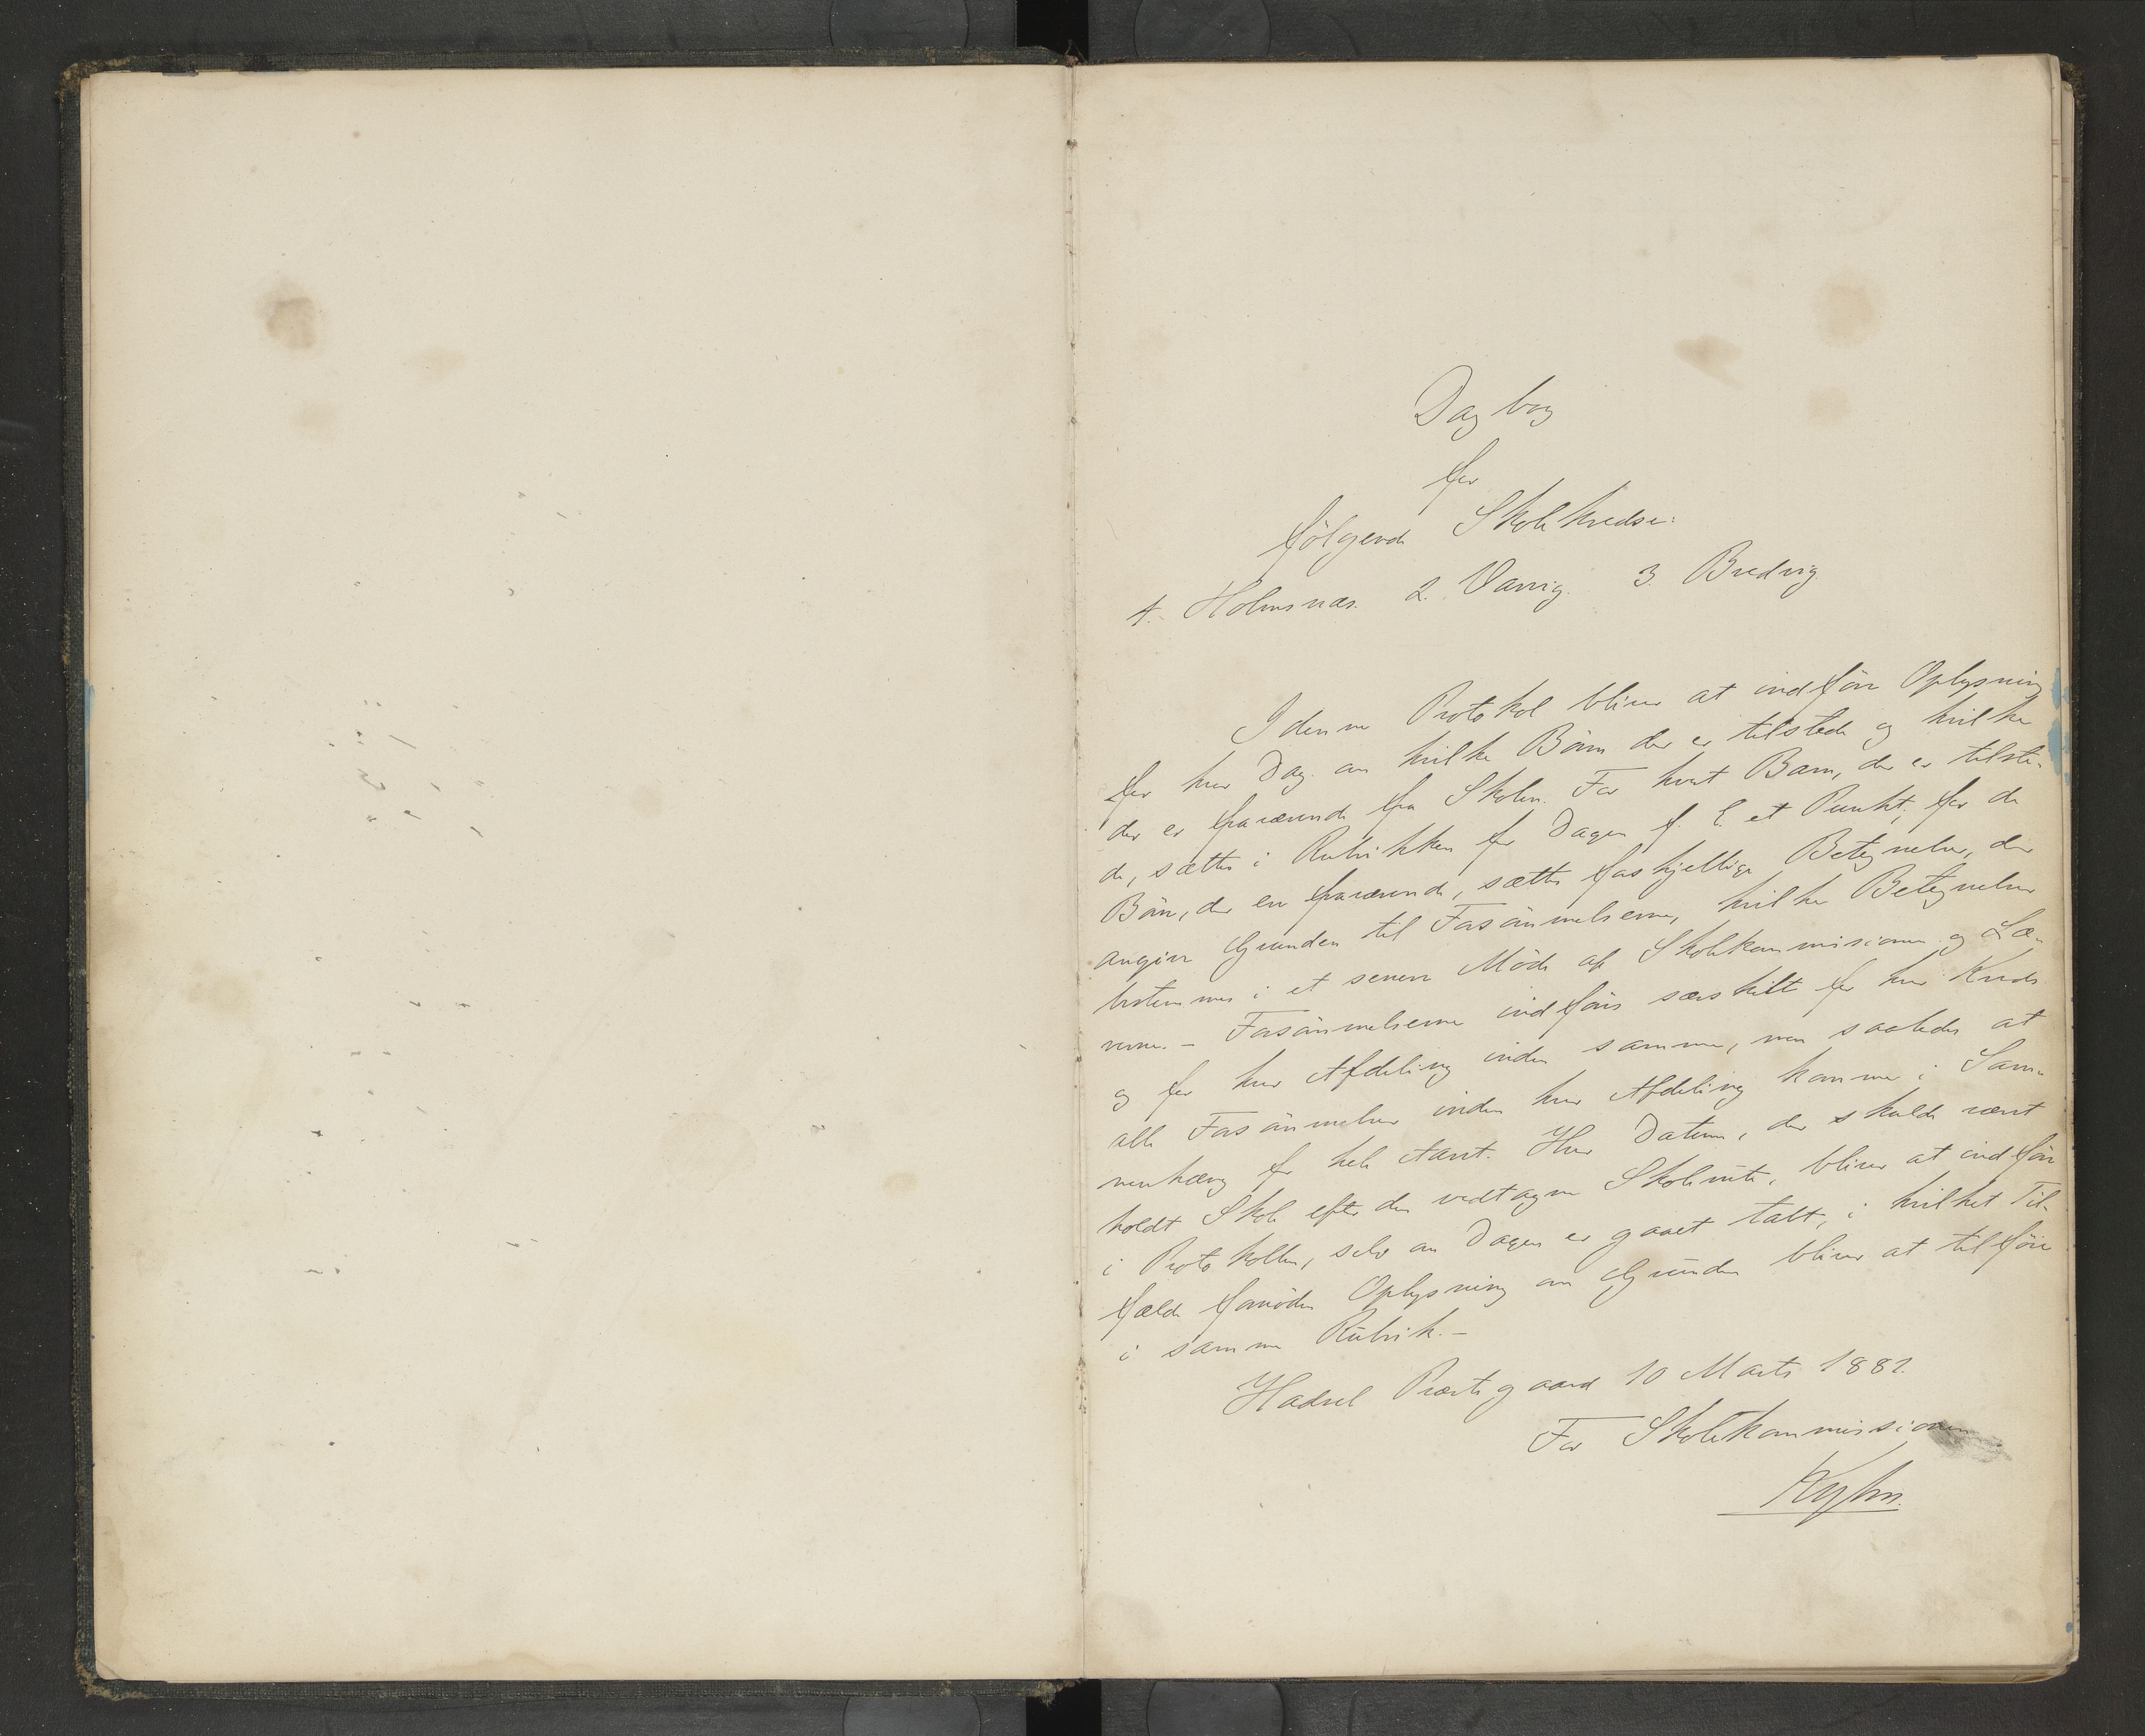 Dagbog
for
følgende Skolekredse:
1. Holmsnæs. 2. Varvig. 3. Bredvig
I denne Protokol bliver at indføre Oplysning
for hver Dag om hvilke Börn der er tilstede og hvilke
der er fraværende fra Skolen. For hvert Barn, der er tilste-
de, sættes i Rubrikken for Dagen f. E. et Punkt; for de
Börn, der er fraværende, sættes forskjellige Betegnelser, der
angiver Grunden til Forsömmelserne, hvilke Betegnelser
bestemmes i et senere Möde af Skolekommissionen og Læ-
rerne. - Forsömmelserne indföres særskilt for hver Kreds
og for hver Afdeling inden samme, men saaledes at
alle Forsömmelser inden hver Afdeling kommer i Sam-
menhæng for hele Aaret. Hver Datum, der skulde været
holdt Skole efter den vedtagne Skolerute, bliver at indföre
i Protokollen, selv om Dagen er gaaet tabt, i hvilket Til-
fælde fornöden Oplysning om Grunden bliver at tilföie
i samme Rubrik. -
Hadsel Præstegaard 10 Marts 1882.
For Skolekommissionen
Kyhn.